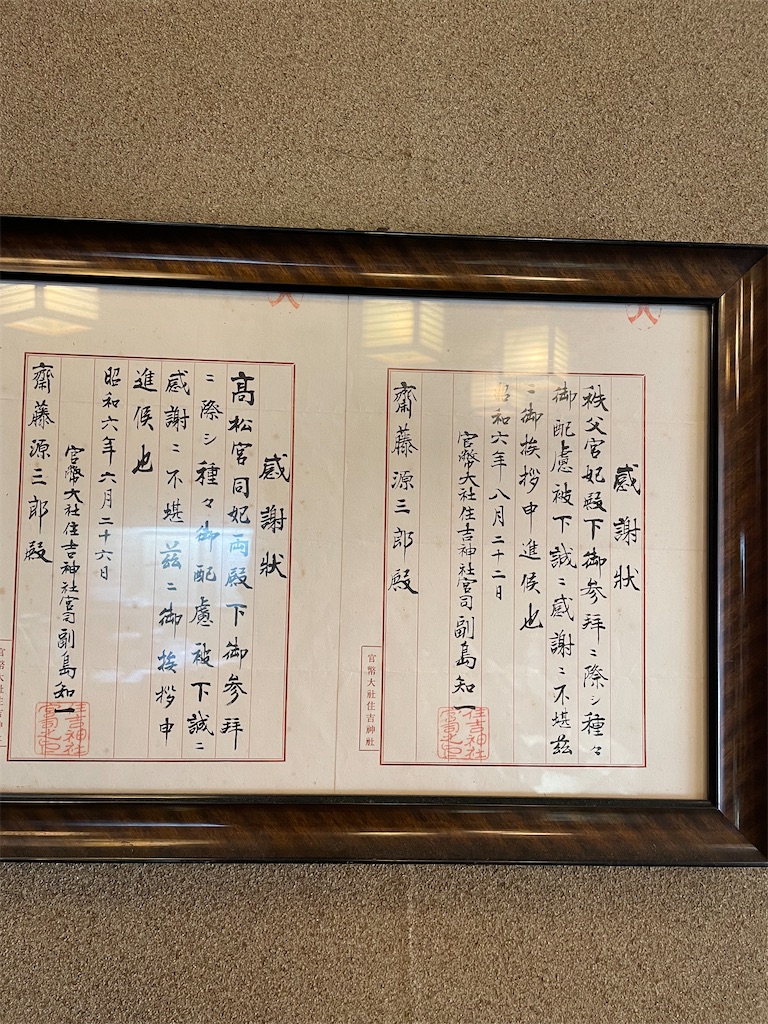 感謝狀
秩父宮妃殿下御参拜ニ際シ種々
御配慮被下誠ニ感謝ニ不堪茲
ニ御挨拶申進候也
昭和六年八月二十二日
官幣大社住吉神社宮司副島知一
齋藤源三郎殿
官幣大社住吉神社
感謝狀
高松宮同妃両殿下御参拜
ニ際シ種々御配慮被下誠ニ
感謝ニ不堪茲ニ御挨拶申
進候也
昭和六年六月二十六日
官幣大社住吉神社宮司副島知一
齋藤源三郎殿